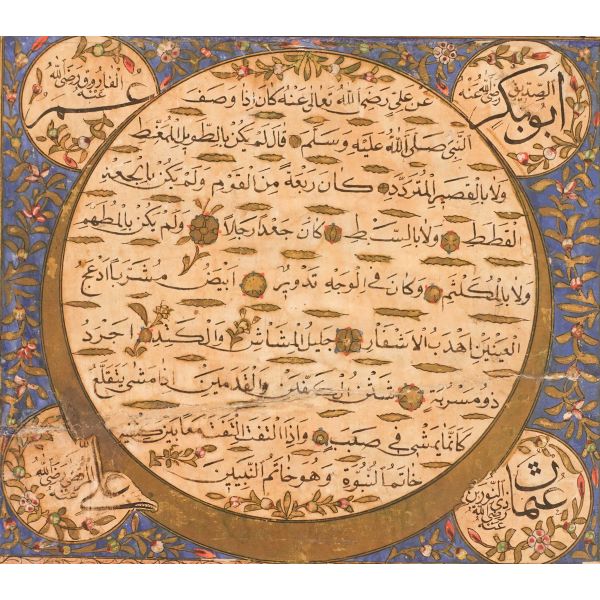 الصديق
ابو بكر
رضي الله عنه
الفاروق رضي الله
عنه
عمر
عن علي رضي الله تعالى عنه كان اذا وصف
النبي صلى الله عليه وسلم قال لم يكن بالطويل الممغط
ولا بالقصير المتردد كان ربعة من القوم ولم يكن بالجعد
القطط ولا بالسبط كان جعدا رجلا ولم يكن بالمطهم
ولا بالمكلثم وكان في الوجه تدوير ابيض مشربا ادعج
العينين اهدب الاشفار جليل المشاش والكتد اجرد
ذو مسربة شثن الكفين والقدمين اذا مشى يتقلع
كانما يمشي في صبب واذا التفت التفت معا بين كتفيه
خاتم النبوة وهو خاتم النبيين
عثمان
ذي النورين
رضي الله
عنه
رضي الله
عنه
علي